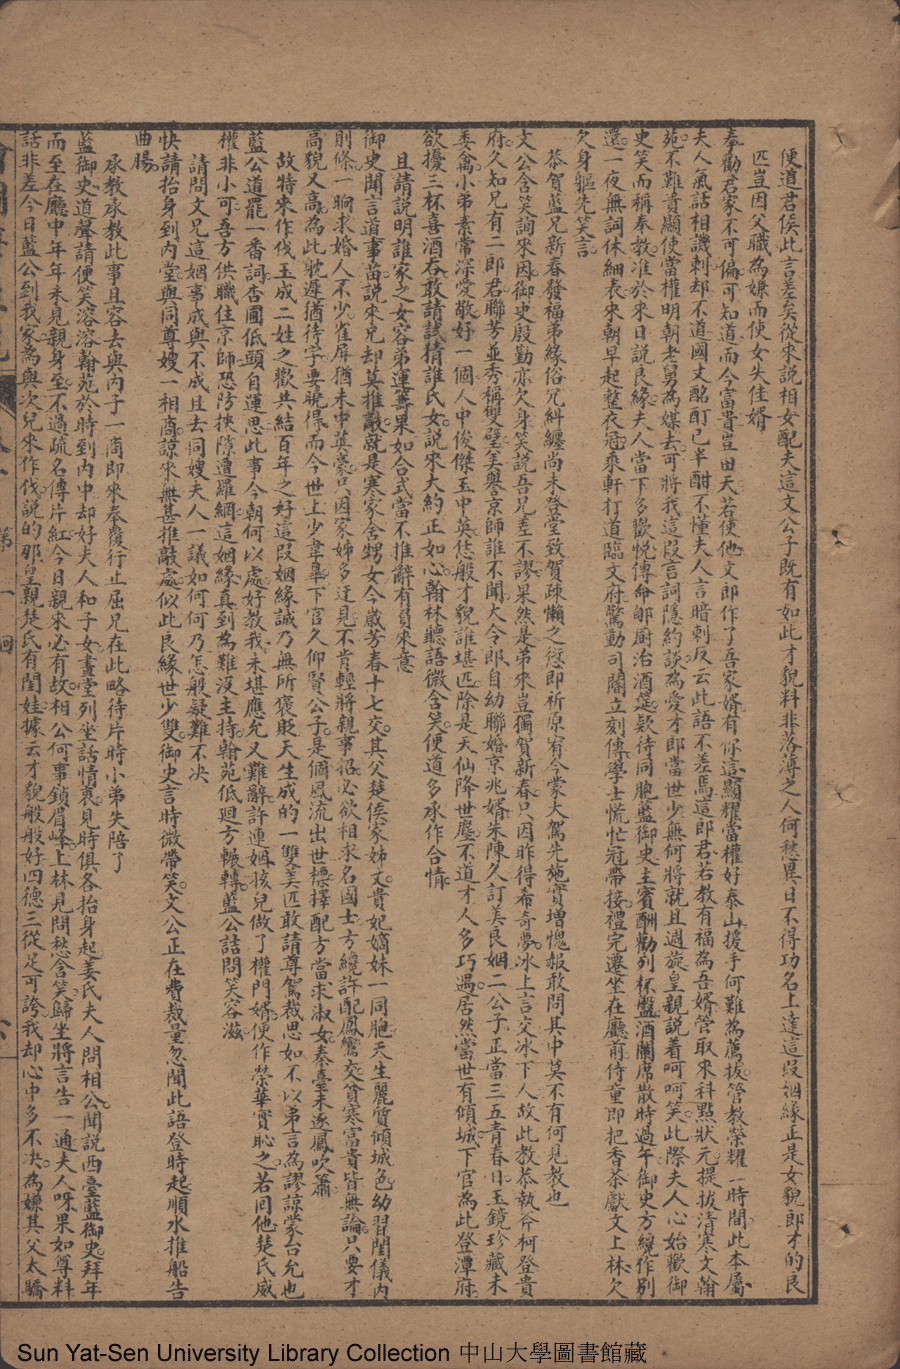 便道君侯此言差矣從來説相女配夫這文公子既有如此才貌料非落薄之人何愁異日不得功名上達這段姻緣正是女貌郎才的良
匹豈因父職為嫌而使女失佳婿
奉勸君家不可偏可知道而今富貴豈由天若使他文郎作了吾家婿有你這顯耀當權好泰山援手何難為薦拔管教榮耀一時間此本屬
夫人氣話相譏刺却不道國丈酩酊已半酣不懂夫人言暗刺反云此語不差焉這郎君若教有福為吾婿管取來科點狀元提拔清寒文翰
苑不難貴顯使當權明朝老舅為媒去可將我這段言詞隱約談為愛才郎當世少無何將就且週旋皇親説着呵呵笑此際夫人心始歡御
史笑而稱奉教准於來日説良緣夫人當下多歡悦傳命郇厨治酒筵欵待同胞藍御史主賓酬勸列杯盤酒闌席散時過午御史方纔作別
還一夜無詞休細表來朝早起整衣冠乘軒打道臨文府驚動司閽立刻傳學士慌忙冠帶接禮完遷坐在廳前侍童即把香茶獻文上林欠
欠身軀先笑言
恭賀藍兄新春發福弟緣俗冗糾纏尚未登堂致賀疎懶之愆即祈原宥今蒙大駕先施實增愧赧敢問其中莫不有何見教也
文公含笑詢來因御史殷勤亦欠身笑説吾兄差不謬果然是弟來豈獨賀新春只因昨得希奇夢冰上言交冰下人故此教恭執斧柯登貴
府久知兄有二郎君聯芳並秀稱雙璧美譽京師誰不聞大令郎自幼聯婚京兆婿朱陳久訂美良姻二公子正當三五青春日玉鏡珍藏未
委禽小弟素常深愛敬好一個人中俊傑玉中英恁般才貌誰堪匹除是天仙降世塵不道才人多巧遇居然當世有傾城下官為此登潭府
欲擾三杯喜酒吞敢請試猜誰氏女説來大約正如心翰林聽語微含笑便道多承作合情
且請説明誰家之女容弟運籌果如合式當不推辭有負來意
御史聞言道事苗説來兄却莫推敲就是寒家舍甥女今歲芳春十七交其父楚侯家姊丈貴妃嫡妹一同胞天生麗質傾城色幼習閨儀内
則條一晌求婚人不少雀屏猶未中英豪只因家姊多迂見不肯輕將親事沿必欲相求名國士方纔許配鳳鸞交貧寒富貴皆無論只要才
高貌又高為此躭遲猶待字要曉得而今世上少韋臯下官久仰賢公子是個風流出世標擇配方當求淑女秦臺未遂鳳吹簫
故特來作伐玉成二姓之歡共結百年之好這段姻緣誠乃無所褒貶天生成的一雙美匹敢請尊駕裁思如不以弟言為謬諒蒙台允也
藍公道罷一番詞杏圃低頭自運思此事今朝何以處好教我未堪應允又難辭許連姻孩兒做了權門婿便作榮華實恥之若回他楚氏威
權非小可吾方供職住京師恐防挾隙遭羅網這姻緣真到為難沒主持翰苑低廻方輾轉藍公詰問笑容滋
請問文兄這姻事成與不成且去同嫂夫人一議如何何乃怎般疑難不决
快請抬身到内堂與同尊嫂一相商諒來無甚推敲處似此良緣世少雙御史言時微帶笑文公正在費裁量忽聞此語登時起順水推船告
曲腸
承教承教此事且容去與内子一商即來奉覆行止屈兄在此略待片時小弟失陪了
藍御史道聲請便笑溶溶翰苑於時到内中却好夫人和子女畫堂列坐話情衷見時俱各抬身起姜氏夫人問相公聞説西臺藍御史拜年
而至在廳中年年未見親身至不過疏名傳片紅今日親來必有故相公何事鎖眉峰上林見問愁含笑歸坐將言告一通夫人呀果如尊料
話非差今日藍公到我家為與次兒來作伐説的那皇親楚氏有閨娃據云才貌般般好四德三從足可誇我却心中多不决為嫌其父太驕
第一回